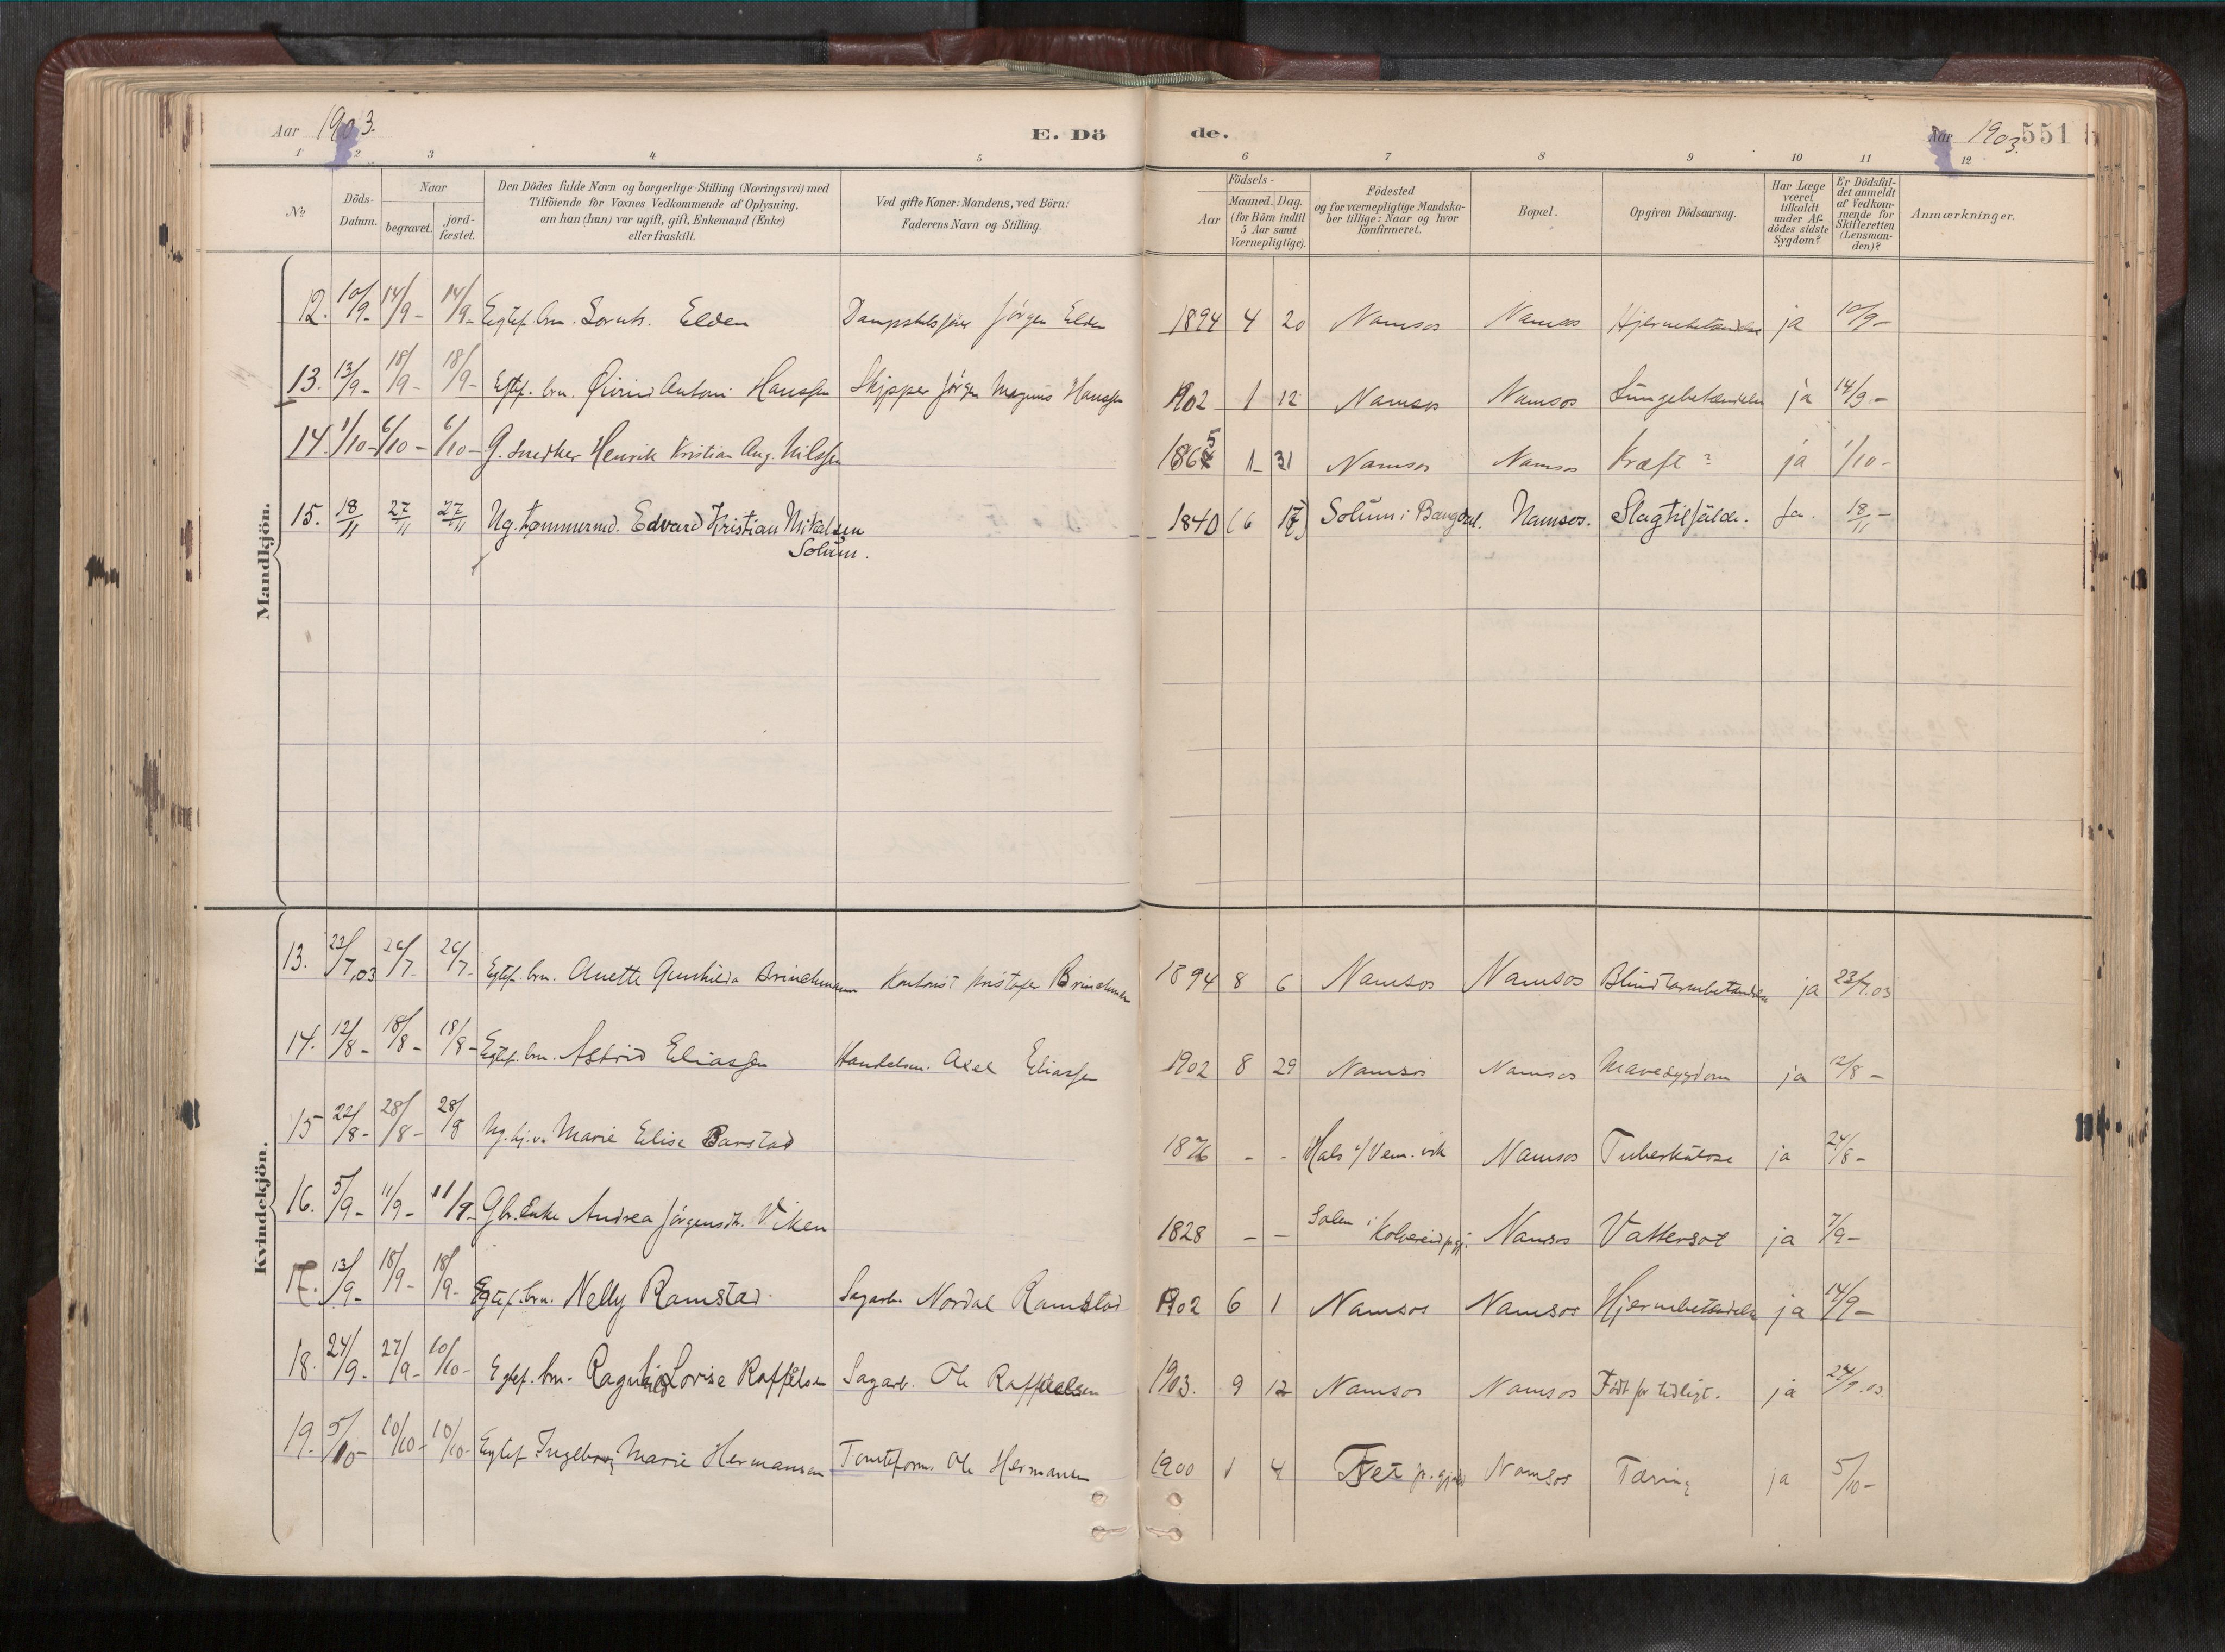 Aar 1903. E. Dö de. Aar 1903. 551
1 2 3 4 5 6 7 8 9 10 11 12
№ Döds-Datum. Naar begravet. jord-fæstet. Den Dödes fulde Navn og borgerlige Stilling (Næringsvei) med Tilföiende for Voxnes Vedkommende af Oplysning, om han (hun) var ugift, gift, Enkemand (Enke) eller fraskilt. Ved gifte Koner: Mandens, ved Börn: Faderens Navn og Stilling. Födsels- Aar Maaned. Dag. (for Börn indtil 5 Aar samt Værnepligtige). Födested og for værnepligtige Mandskaber tillige: Naar og hvor konfirmeret. Bopæl. Opgiven Dödsaarsag. Har Læge været tilkaldt under Afdödes sidste Sygdom? Er Dödsfaldet anmeldt af Vedkommende for Skifteretten (Lensmanden)? Anmærkninger.
Mandkjön.
12. 10/9- 14/9- 14/9- Egtef. brn. Elden Jörgen Elden 1894 4 20 Namsos Namsos Hjernebetændelse ja 10/9-
13. 13/9- 18/9- 18/9- Egtef. brn. Øivind Antoni Hanssen Skipper Jörgen Magnus Hanssen 1902 1 12 Namsos Namsos Lungebetændelse ja 14/9-
14. 1/10- 6/10- 6/10- G. Snedker Henrik Kristian Aug. Nilssen 1865 1 31 Namsos Namsos Kræft? ja 1/10-
15. 18/11 27/11 27/11 Ug. tømmermd. Edvard Kristian Mikalsen 1840 (6 17) Solum i Bangdal. Namsos. Slagtilfælde. Ja. 18/11-
Solum.
Kvindekjön.
13. 23/7.03 26/7- 26/7- Egtef. brn. Anette Gunhilda Brinchmann Kontorist Kristofer Brinchmann 1894 8 6 Namsos Namsos Blindtarmbetændelse ja 23/7.03
14. 12/8- 18/8- 18/8- Egtef. brn. Astrid Eliassen Handelsm. Axel Eliassen 1902 8 29 Namsos Namsos Mavesygdom ja 12/8-
15 22/8- 28/8- 28/8 Ug. Marie Elise Barstad 1876 - - Hals Namsos Tuberkulose ja 24/8-
16. 5/9- 11/9- 11/9- Enke Andrea Jörgensdt. Viken 1828 - - Salen i Kolvereid pgj. Namsos Vattersot ja 7/9-
17. 13/9- 18/9- 18/9- Egtef. brn. Nelly Ramstad Sagarb. Nordal Ramstad 1902 6 1 Namsos Namsos Hjernebetændelse ja 14/9-
18. 24/9- 27/9- 10/10- Egtef. brn. Ragnhild Lovise Raffelsen Sagarb. Ole Raffaelsen 1903. 9 12 Namsos Namsos Födt for tidligt. ja 24/9.03.
19. 5/10- 10/10- 10/10- Egtef. Ingeborg Marie Hermansen Tomteform. Ole Hermansen 1900 1 4 Fet pr.gjeld Namsos Tæring ja 5/10-